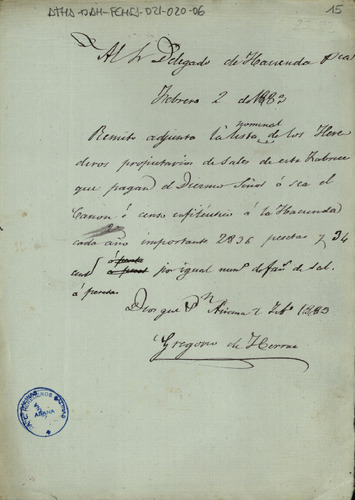 ATHA-DAH-FCHCJ-021-020-06
15
Al Sr Delegado de Hacienda
Febrero 2 de 1883
Remito adjunta la lista nominal de los Here
deros propietarios de Sales de esta Fabrica
que pagan el Diezmo Señor ó sea el
Canon ó censo enfitéutico á la Hacienda
cada año importante 2836 pesetas y 34
cent por igual num.o de fan.s de sal
á peseta
Dios gue Añana 2 Feb.o 1883
Gregorio de Herran
AÑANA